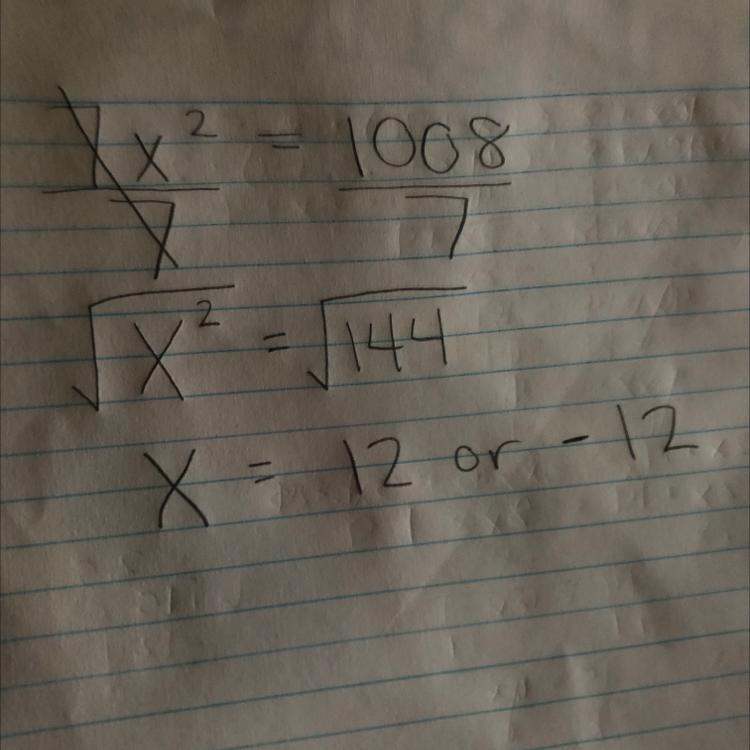 7x² = 1008
7 7
√x² = √144
x = 12 or -12